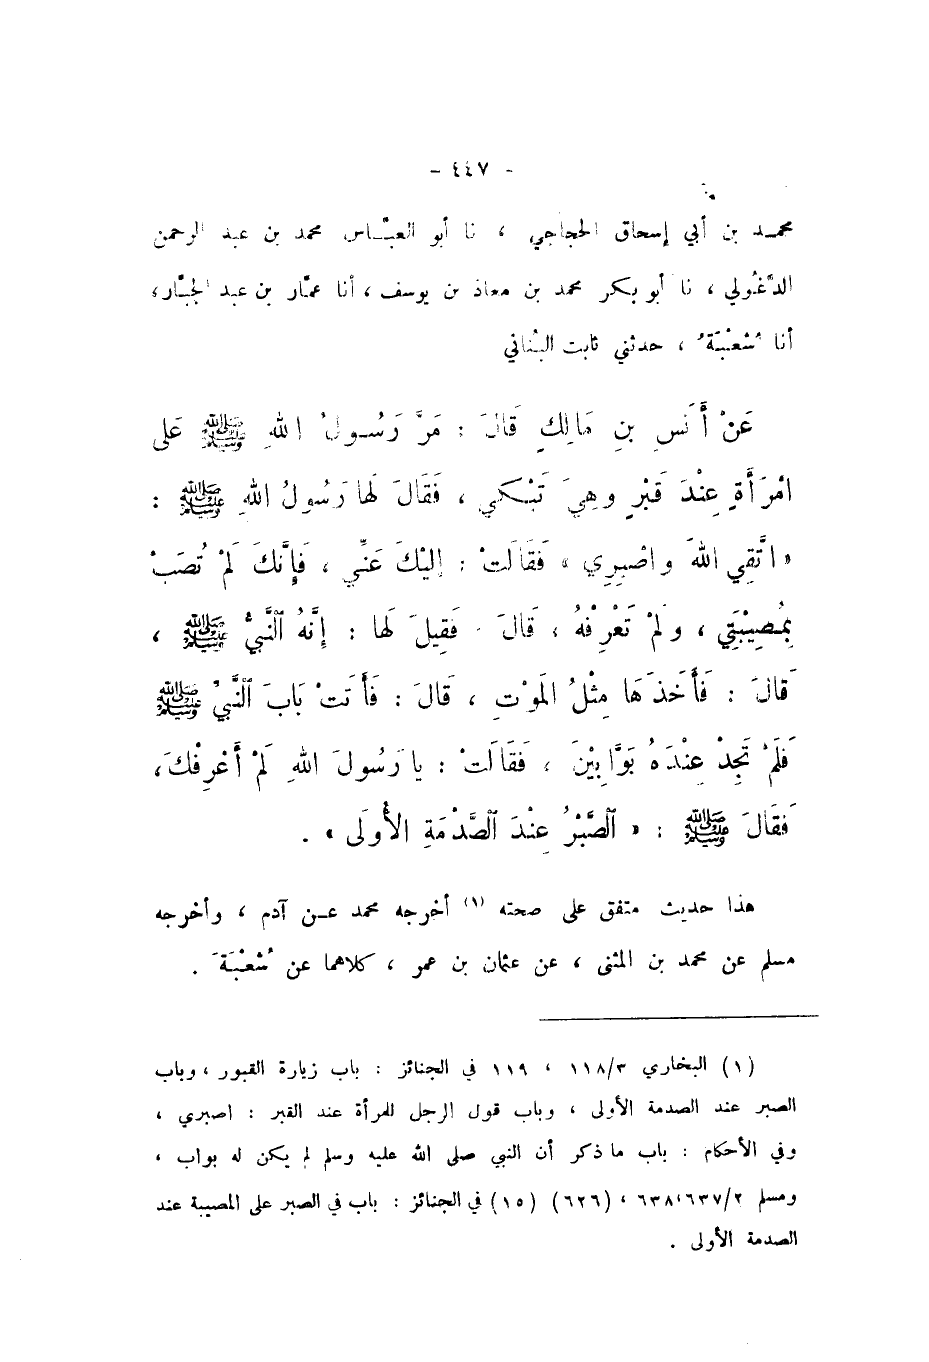 - ٤٤٧ -
محمـد بن أبي إسحاق الحجاجي ، نا أبو العبَّـاس محمد بن عبد الرحمن
الدَّغُولي ، نا أبو بكر محمد بن معاذ بن يوسف ، أنا عمَّار بن عبد الجبَّار ،
أنا شُعْبَةُ ، حدثني ثابت البُناني
عَنْ أَنَسِ بنِ مَالِكٍ قَالَ : مَرَّ رَسُـولُ اللهِ ﷺ عَلى
امْرَأَةٍ عِنْدَ قَبْرٍ وهِيَ تَبْـكي ، فَقَالَ لها رَسُولُ اللهِ ﷺ :
« اتَّقِي اللهَ واصْبِرِي » فَقَالَتْ : إلَيْكَ عَنِّي ، فَإنَّكَ لَمْ تُصَبْ
بِمُصِيْبَتِي ، ولَمْ تَعْرِفْهُ ، قَالَ . فَقِيلَ لَها : إنَّهُ النَّبِيُّ ﷺ ،
قَالَ : فَأَخَذَهَا مِثْلُ المَوْتِ ، قَالَ : فَأَتَتْ بَابَ النَّبِيِّ ﷺ
فَلَمْ تَجِدْ عِنْدَهُ بَوَّابِيْنَ ، فَقَالَتْ : يا رَسُولَ اللهِ لَمْ أَعْرِفْكَ ،
فَقَالَ ﷺ : « الصَّبْرُ عِنْدَ الصَّدْمَةِ الأُولَى » .
هذا حديث متفق على صحته (١) أخرجه محمد عـن آدم ، وأخرجه
مسلم عن محمد بن المثنى ، عن عثمان بن عمر ، كلاهما عن شُعْبَةَ .
(١) البخاري ١١٨/٣ ، ١١٩ في الجنائز : باب زيارة القبور ، وباب
الصبر عند الصدمة الأولى ، وباب قول الرجل للمرأة عند القبر : اصبري ،
وفي الأحكام : باب ما ذكر أن النبي صلى الله عليه وسلم لم يكن له بواب ،
ومسلم ٦٣٧/٢، ٦٣٨ ، (٦٢٦) (١٥) في الجنائز : باب في الصبر على المصيبة عند
الصدمة الأولى .